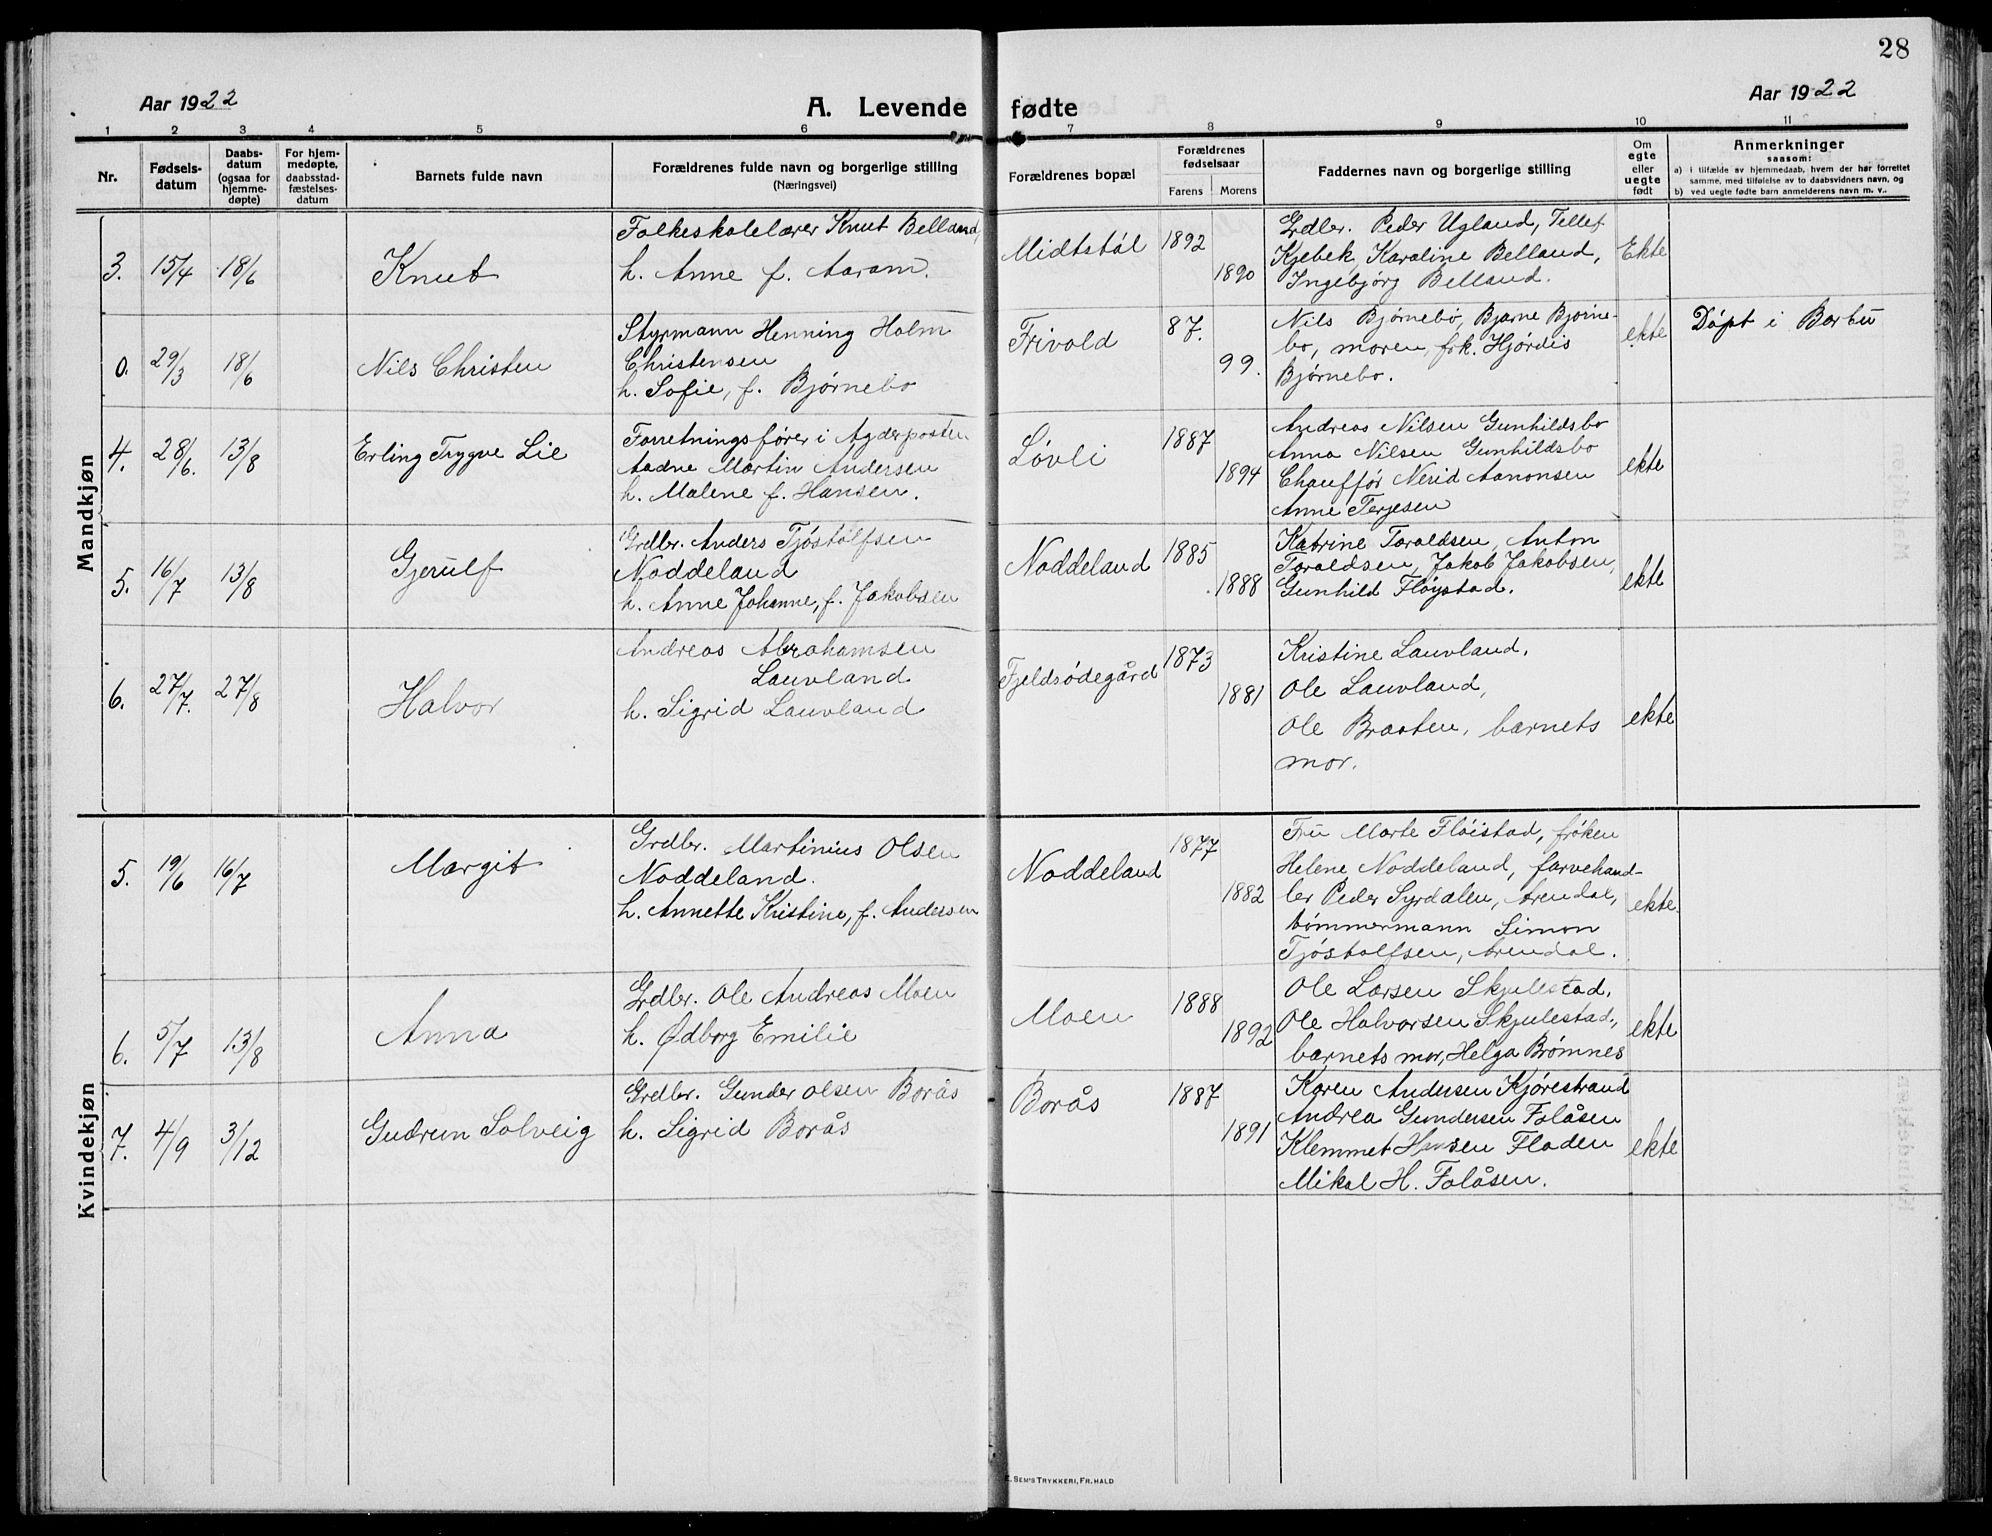 28
Aar 1922
A. Levende fødte
Aar 1922
1 2 3 4 5 6 7 8 9 10 11
Nr.
Fødsels-
datum
Daabs-
datum
(ogsaa for
hjemme-
døpte)
For hjem-
medøpte,
daabsstad-
fæstelses-
datum
Barnets fulde navn
Forældrenes fulde navn og borgerlige stilling
(Næringsvei)
Forældrenes bopæl
Forældrenes
fødselsaar
Farens Morens
Faddernes navn og borgerlige stilling
Om
egte
eller
uegte
født
Anmerkninger
saasom:
a) i tilfælde av hjemmedaab, hvem der har forrettet
samme, med tilføielse av to daabsvidners navn, og
b) ved uegte fødte barn anmelderens navn m. v..
Mandkjøn
3. 15/4 18/6 Knut
Folkeskolelærer Knut Belland,
h. Anne f. Aaram.
Midtstøl 1892 1890
Grdbr. Peder Ugland, Tellef
Kjebek, Karoline Belland,
Ingebjørg Belland.
Ekte
0. 29/3 18/6 Nils Christen
Styrmann Henning Holm
Christensen
h. Sofie, f. Bjørnebo
Frivold 87. 99.
Nils Bjørnebo, Bjarne Bjørne-
bo, moren, frk. Hjørdis
Bjørnebo.
ekte
Døpt i Barbu
4. 28/6. 13/8 Erling Trygve Lie
Forretningsfører i Agderposten
Aadne Martin Andersen
h. Malene f. Hansen.
Løvli 1887 1894
Andreas Nilsen Gunhildsbo
Anna Nilsen Gunhildsbo
Chauffør Nerid Aanonsen
Anne Terjesen
ekte
5. 16/7 13/8 Gjerulf
Grdbr. Anders Tjøstolfsen
Noddeland
h. Anne Johanne, f. Jakobsen
Noddeland 1885 1888
Katrine Taraldsen, Anton
Taraldsen, Jakob Jakobsen,
Gunhild Fløystad.
ekte
6. 27/7. 27/8 Halvor
Andreas Abrahamsen
Lauvland
h. Sigrid Lauvland
Fjeldsødegård 1873 1881
Kristine Lauvland,
Ole Lauvland,
Ole Braaten, barnets
mor.
ekte
Kvindekjøn
5. 19/6 16/7 Margit
Grdbr. Martinius Olsen
Noddeland.
h. Annette Kristine, f. Andersen
Noddeland 1877 1882
Fru Marte Fløistad, frøken
Helene Noddeland, farvehand-
ler Peder Syrdalen, Arendal,
tømmermann Simon
Tjøstolfsen, Arendal.
ekte.
6. 5/7 13/8 Anna
Grdbr. Ole Andreas Moen
h. Ødborg Emilie
Moen 1888 1892
Ole Larsen Skjulestad,
Ole Halvorsen Skjulestad,
barnets mor, Helga Brømnes
ekte
7. 4/9 3/12 Gudrun Solveig
Grdbr. Gunder Olsen Borås
h. Sigrid Borås
Borås 1887 1891
Karen Andersen Kjørestrand
Andrea Gundersen Folåsen
Klemmet Hansen Fladen
Mikal H. Folåsen.
ekte
E. SEM'S TRYKKERI, FR. HALD